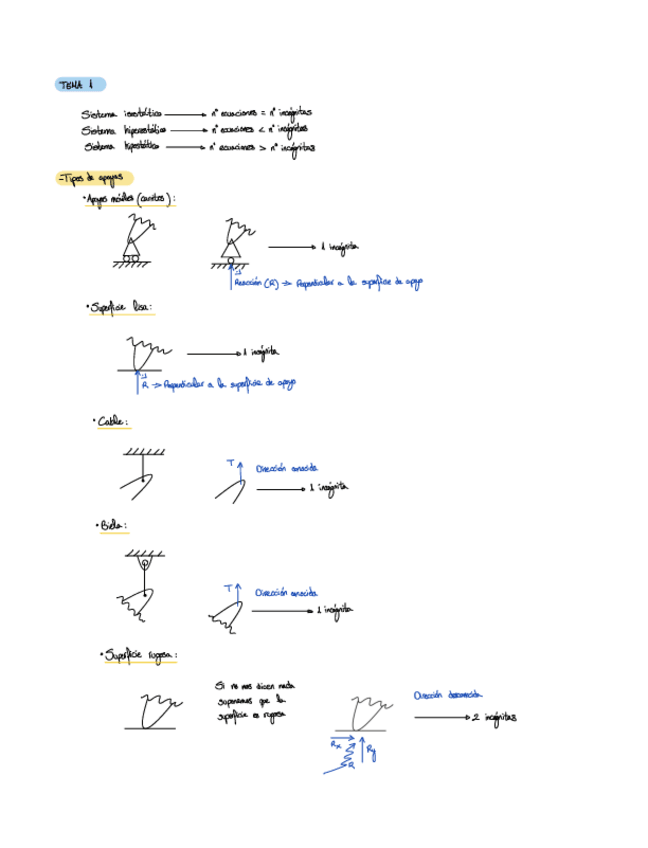 TEMA 1
Sistema isostático → nº ecuaciones = nº incógnitas
Sistema hiperestático → nº ecuaciones < nº incógnitas
Sistema hipostático → nº ecuaciones > nº incógnitas
-Tipos de apoyos
• Apoyos móviles (carritos):
→ 1 incógnita
Reacción (R) → Perpendicular a la superficie de apoyo
• Superficie lisa:
→ 1 incógnita
R → Perpendicular a la superficie de apoyo
• Cable:
T Dirección conocida
→ 1 incógnita
• Biela:
T Dirección conocida
→ 1 incógnita
• Superficie rugosa:
Si no nos dicen nada
suponemos que la
superficie es rugosa
Dirección desconocida
→ 2 incógnitas
Rx Ry
R